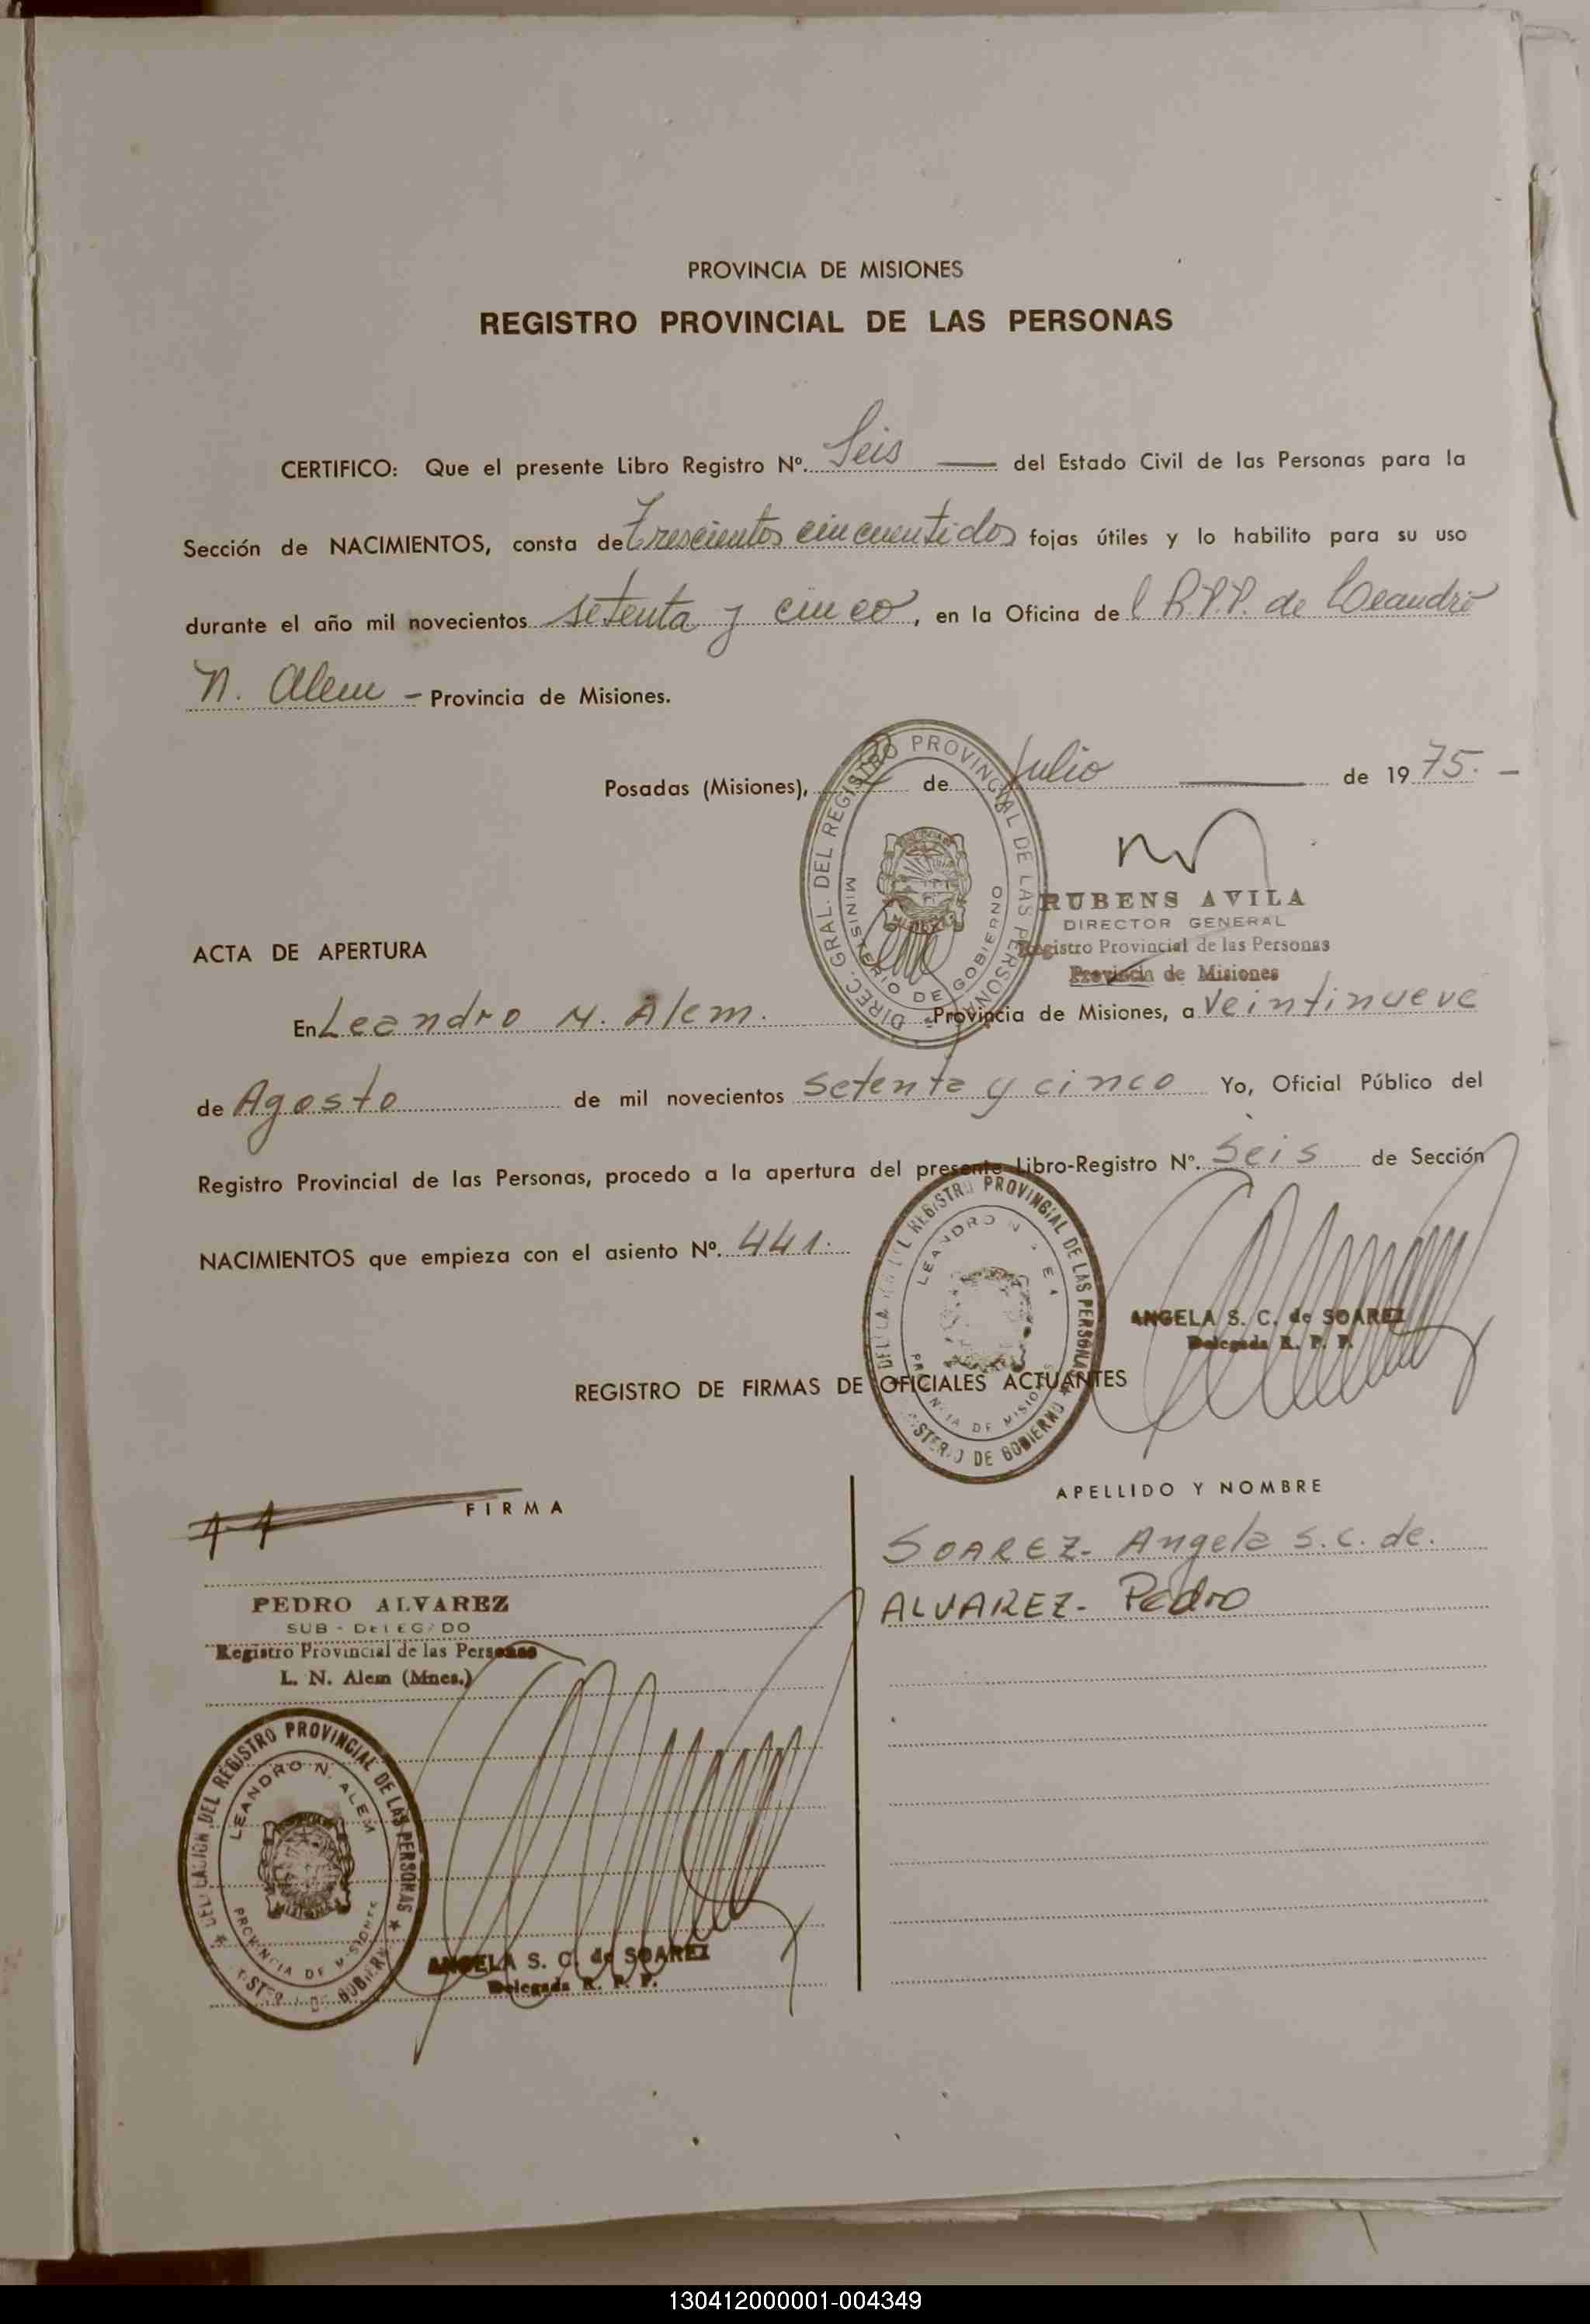 PROVINCIA DE MISIONES
REGISTRO PROVINCIAL DE LAS PERSONAS
CERTIFICO: Que el presente Libro Registro Nº. Seis — del Estado Civil de las Personas para la
Sección de NACIMIENTOS, consta de Trescientos cincuentidos fojas útiles y lo habilito para su uso
durante el año mil novecientos setenta y cinco, en la Oficina del R.P.P. de Leandro
N. Alem - Provincia de Misiones.
Posadas (Misiones), de Julio — de 1975. -
DIREC. GRAL. DEL REGISTRO PROVINCIAL DE LAS PERSONAS
MINISTERIO DE GOBIERNO
RUBENS AVILA
DIRECTOR GENERAL
Registro Provincial de las Personas
Provincia de Misiones
ACTA DE APERTURA
En Leandro N. Alem. Provincia de Misiones, a Veintinueve
de Agosto de mil novecientos Setenta y cinco Yo, Oficial Público del
Registro Provincial de las Personas, procedo a la apertura del presente Libro-Registro Nº. Seis de Sección
NACIMIENTOS que empieza con el asiento Nº. 441.
REGISTRO PROVINCIAL DE LAS PERSONAS
LEANDRO N
PROVINCIA DE MISIONES
DE GOBIERNO
ANGELA S. C. de SOAREZ
Delegada R. P. P.
REGISTRO DE FIRMAS DE OFICIALES ACTUANTES
FIRMA
APELLIDO Y NOMBRE
SOAREZ- Angela S. C. de.
ALVAREZ- Pedro
PEDRO ALVAREZ
SUB - DELEGADO
Registro Provincial de las Personas
L. N. Alem (Mnes.)
DEL REGISTRO PROVINCIAL DE LAS PERSONAS
LEANDRO N. ALEM
PROVINCIA DE MISIONES
ANGELA S. C. de SOAREZ
Delegada R. P. P.
130412000001-004349